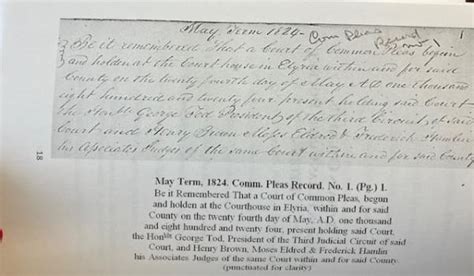 May Term 1824 - Com Pleas Record No 1
Be it remembered That a Court of Common Pleas begun
and holden at the Court house in Elyria within and for said
County on the twenty fourth day of May A.D. one thousand
eight hundred and twenty four present holding said Court
the Honble George Tod President of the third Circuit of said
Court and Henry Brown Moses Eldred & Frederick Hamlin
his Associates Judges of the same Court within and for said County
18
May Term, 1824. Comm. Pleas Record. No. 1. (Pg.) 1.
Be it Remembered That a Court of Common Pleas, begun
and holden at the Courthouse in Elyria, within and for said
County on the twenty fourth day of May, A.D. one thousand
and eight hundred and twenty four, present holding said Court,
the Honble George Tod, President of the Third Judicial Circuit of said
Court, and Henry Brown, Moses Eldred & Frederick Hamlin
his Associates Judges of the same Court within and for said County
(punctuated for clarity)